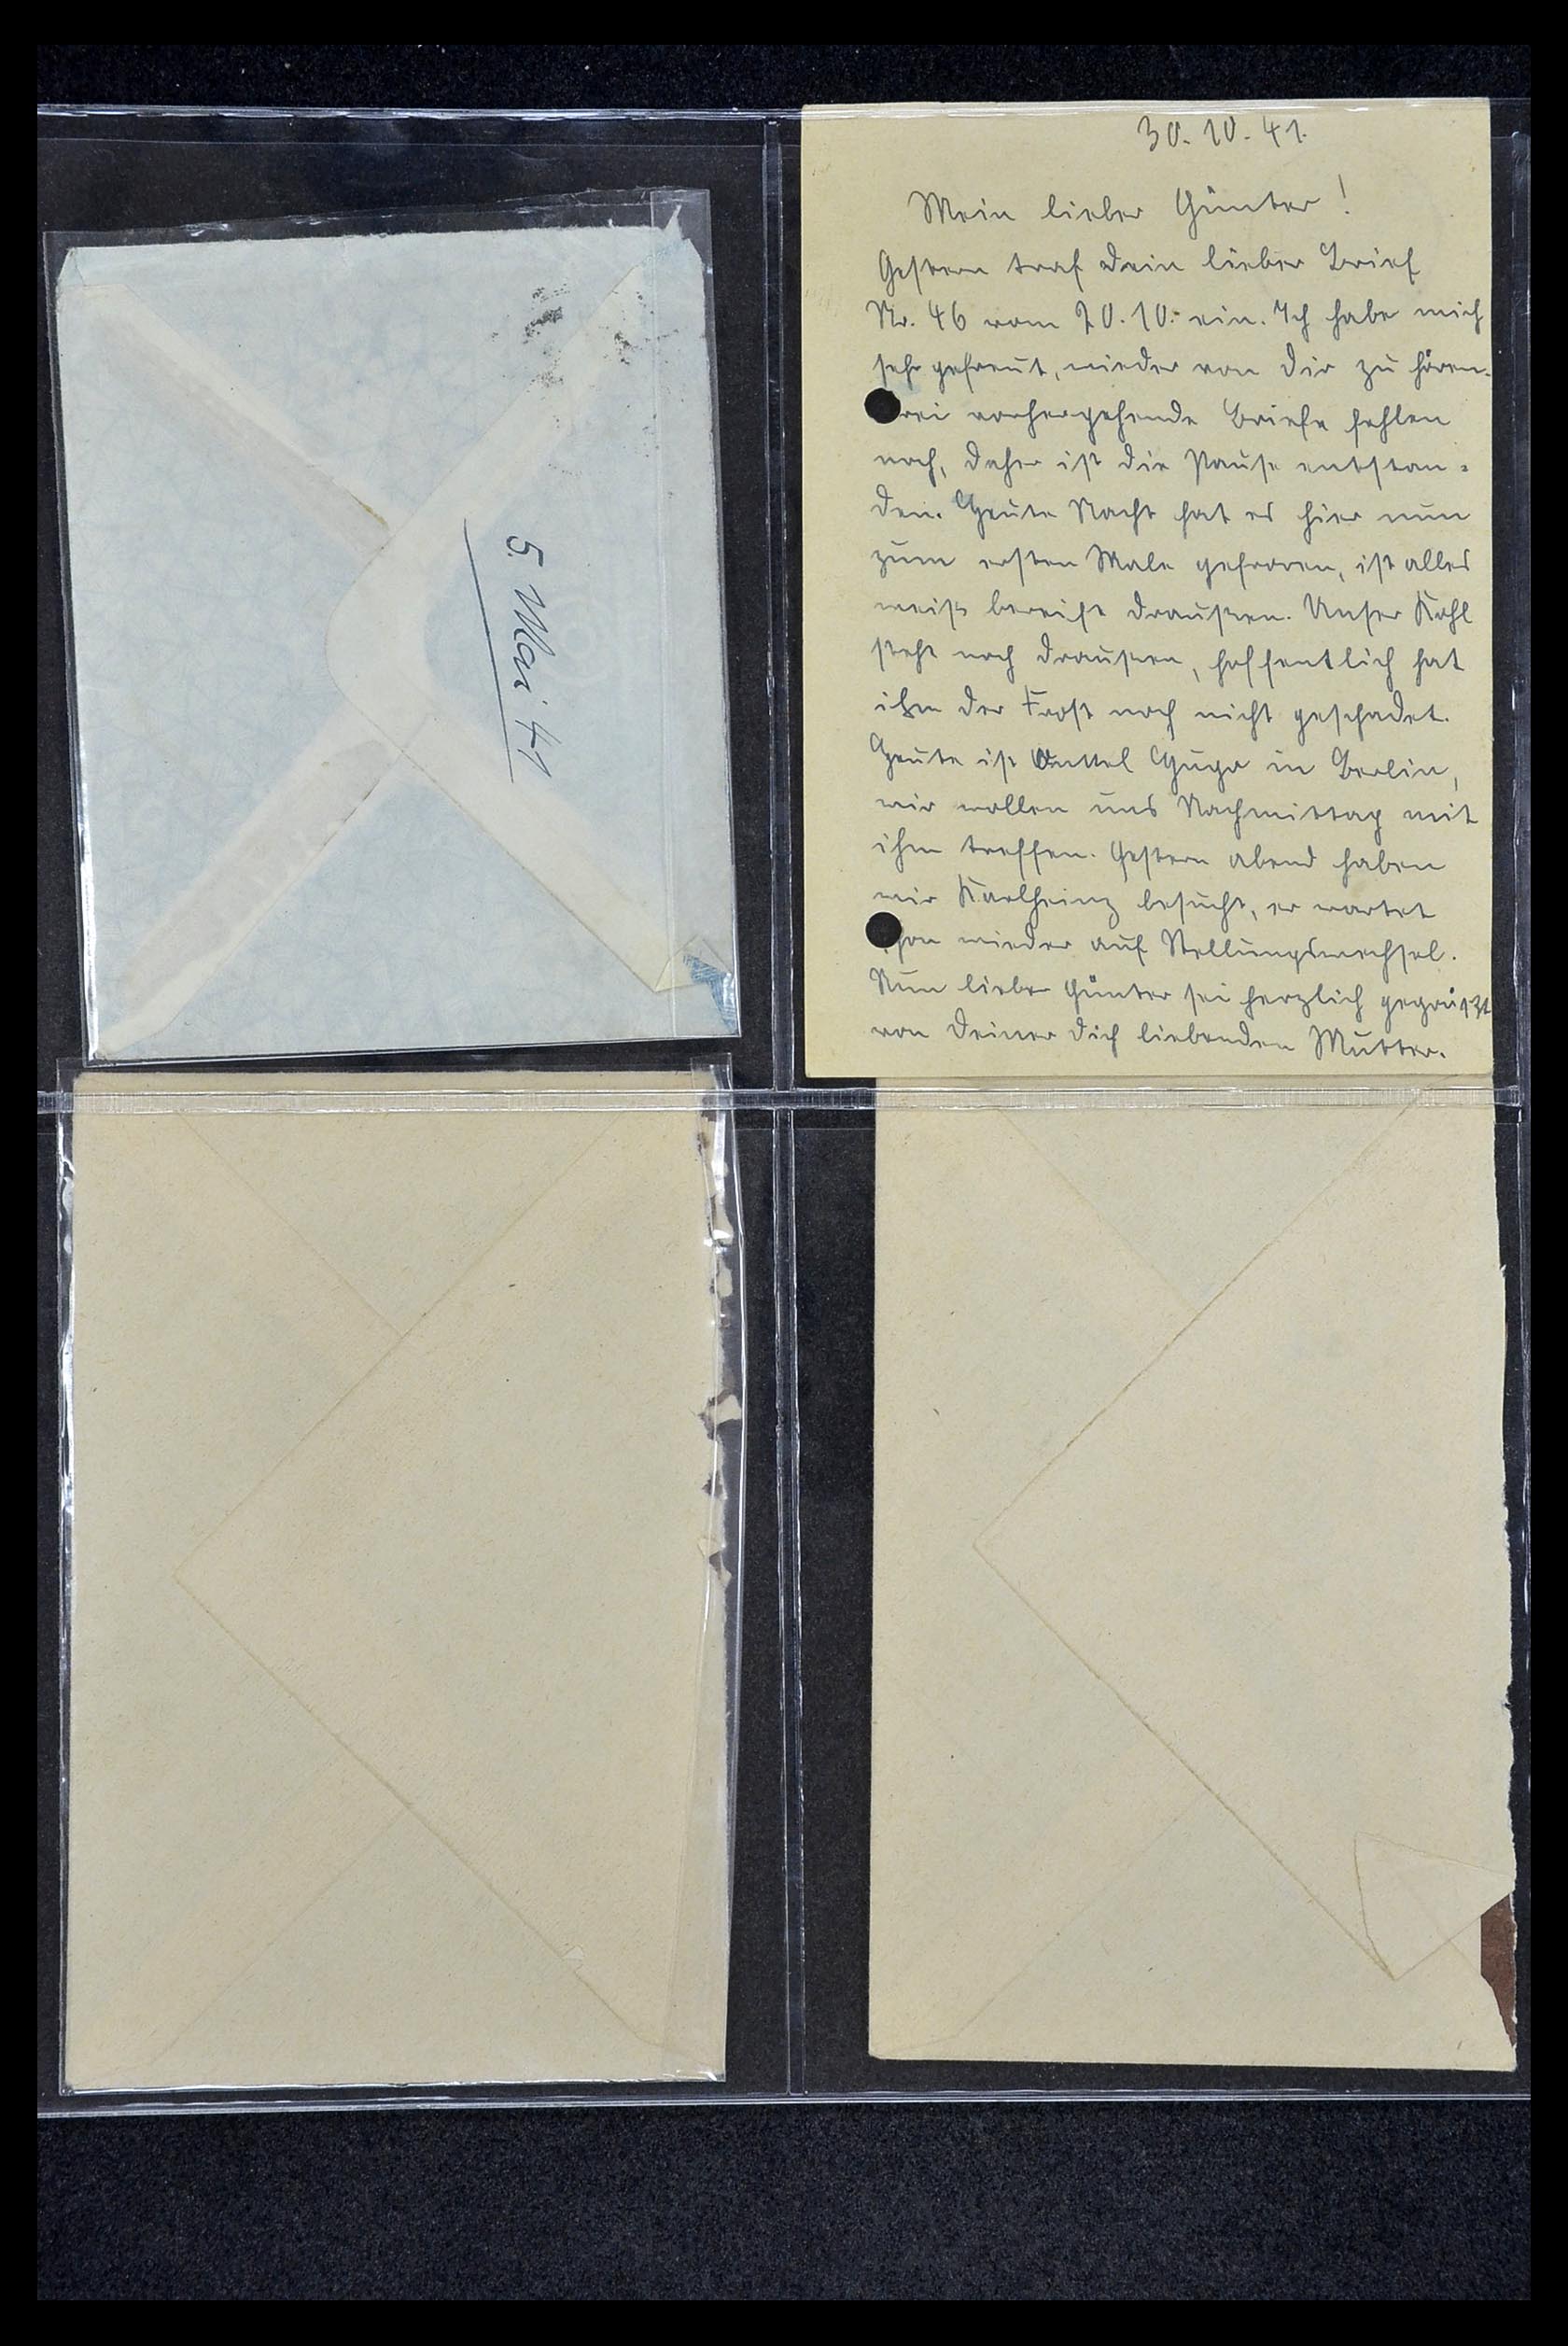 5. Mai 41
30.10.41.
Mein lieber Günter!
Gestern traf Dein lieber Brief
Nr. 46 vom 20.10. ein. Ich habe mich
sehr gefreut, wieder von Dir zu hören.
rei vorhergehende Briefe fehlen
noch, daher ist die Pause entstan-
den. Heute Nacht hat es hier nun
zum ersten Male gefroren, ist alles
weiß bereift draußen. Unser Kohl
steht noch draußen, hoffentlich hat
ihm der Frost noch nicht geschadet.
Heute ist Hugo in Berlin,
wir wollen uns Nachmittag mit
ihm treffen. Gestern abend haben
wir Karlheinz besucht, er wartet
hon wieder auf Stellungswechsel.
Nun lieber Günter sei herzlich gegrüßt
von Deiner Dich liebenden Mutter.